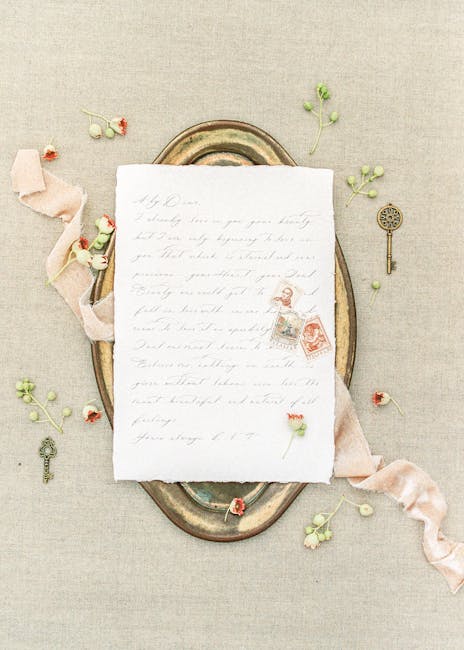 My Dear,
I already love in you your beauty
but I am only beginning to love in
you that which is eternal and ever
precious - your heart, your soul.
Beauty one could get to
fall in love with in one hour
cease to love it as speedily
soul one must learn to
Believe me, nothing on earth is
given without labour even love the
most beautiful and natural of all
feelings.
Yours always